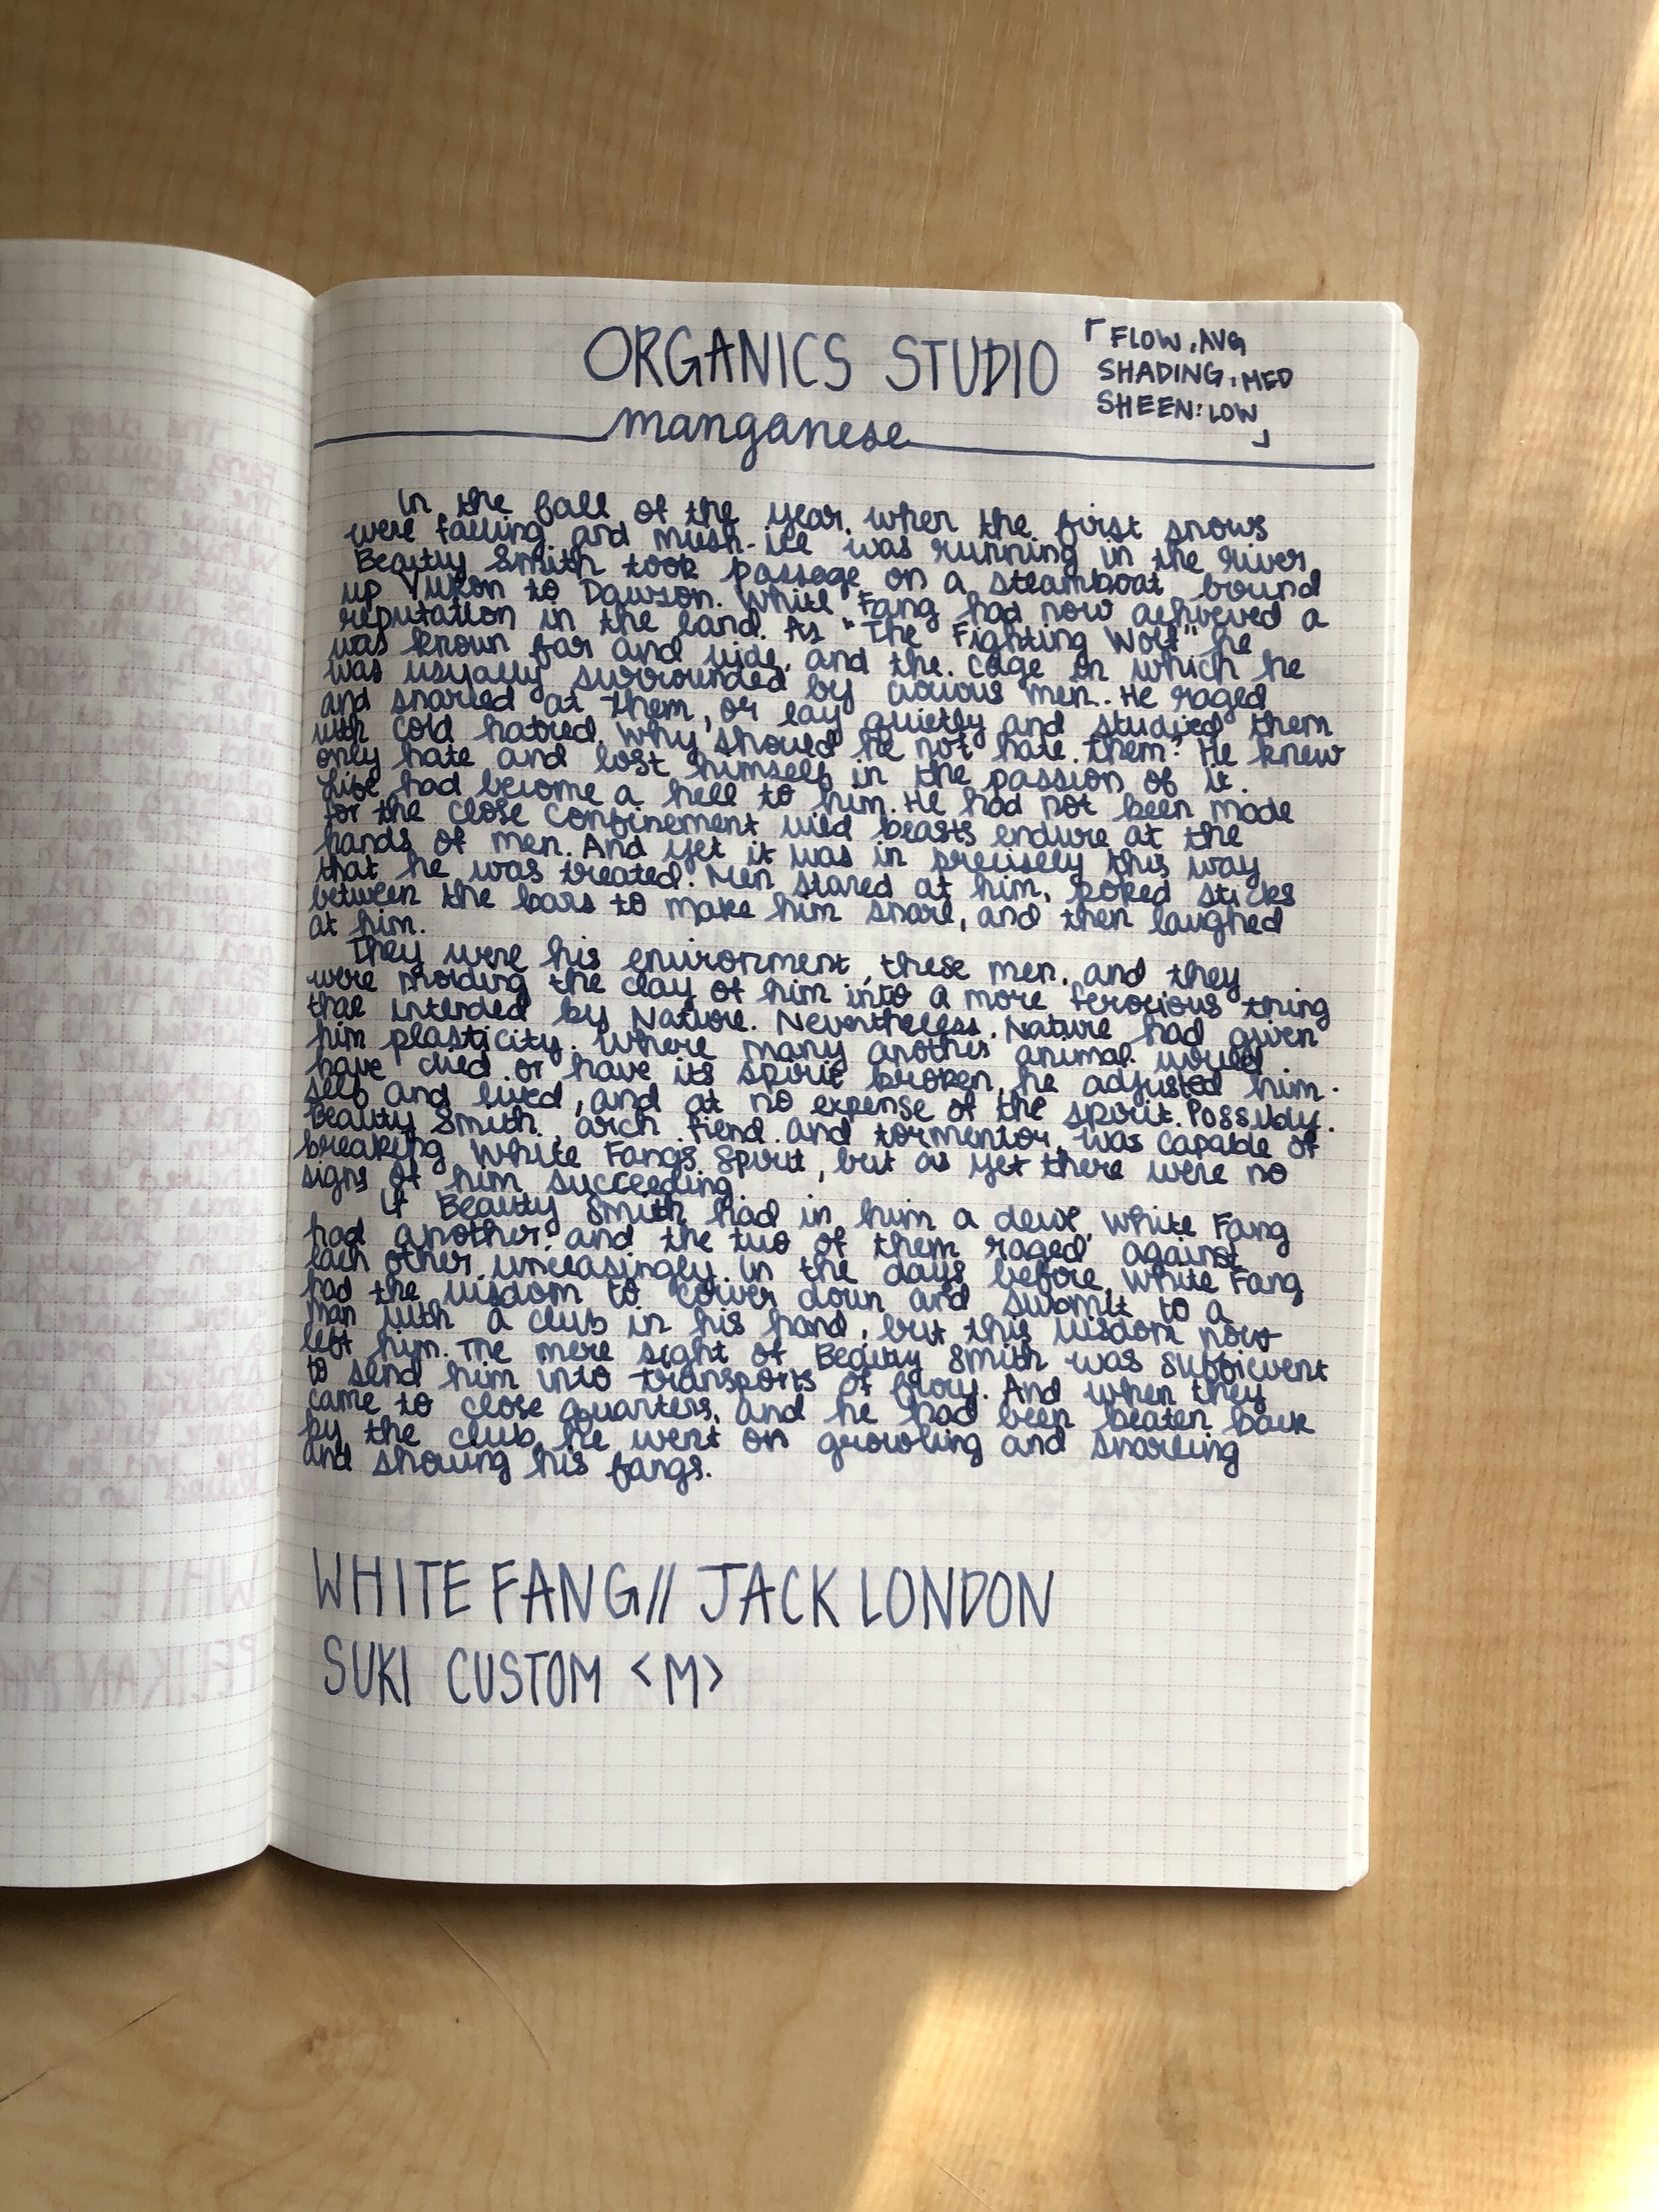 ORGANICS STUDIO
manganese
「FLOW: AVG
SHADING: MED
SHEEN: LOW」
In the fall of the year, when the first snows
were falling and mush-ice was running in the river
Beauty Smith took passage on a steamboat bound
up Yukon to Dawson. White Fang had now achieved a
reputation in the land. As "The Fighting Wolf" he
was known far and wide, and the cage in which he
was usually surrounded by curious men. He raged
and snarled at them, or lay quietly and studied them
with cold hatred. Why should he not hate them? He knew
only hate and lost himself in the passion of it.
Life had become a hell to him. He had not been made
for the close confinement wild beasts endure at the
hands of men. And yet it was in precisely this way
that he was treated. Men stared at him, poked sticks
between the bars to make him snarl, and then laughed
at him.
They were his environment, these men, and they
were molding the clay of him into a more ferocious thing
than intended by Nature. Nevertheless, Nature had given
him plasticity. Where many another animal would
have died or have its spirit broken, he adjusted him-
self and lived, and at no expense of the spirit. Possibly.
Beauty Smith, arch-fiend and tormentor, was capable of
breaking White Fangs spirit, but as yet there were no
signs of him succeeding.
If Beauty Smith had in him a devil, White Fang
had another; and the two of them raged against
each other unceasingly. In the days before, White Fang
had the wisdom to cower down and submit to a
man with a club in his hand, but this wisdom now
left him. The mere sight of Beauty Smith was sufficient
to send him into transports of fury. And when they
came to close quarters, and he had been beaten back
by the club, he went on growling and snarling
and showing his fangs.
WHITE FANG// JACK LONDON
SUKI CUSTOM <M>